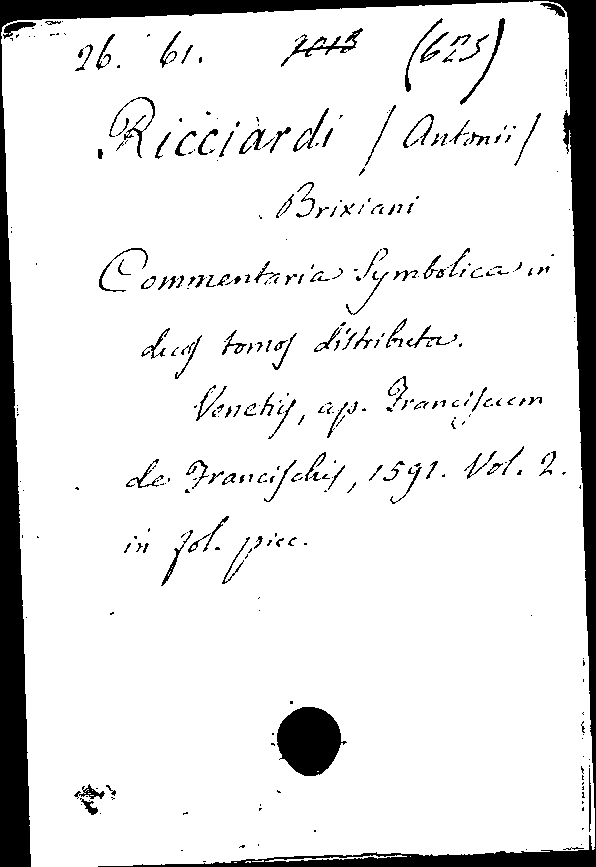 26. 61. 7013 (625)
Ricciardi / Antonii /
Brixiani
Commentaria Symbolica in
duos tomos distributa.
Venetiis, ap. Franciscum
de Francischis, 1591. Vol. 2.
in fol. picc.